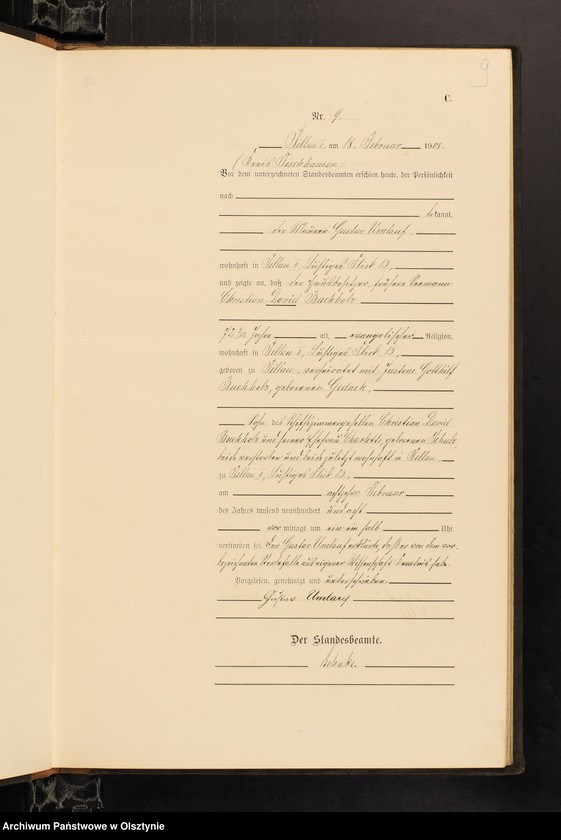 9
C.
Nr. 9.
Pillau II, am 18. Februar 1908.
(Kreis Fischhausen)
Vor dem unterzeichneten Standesbeamten erschien heute, der Persönlichkeit
nach
bekannt,
der Maurer Gustav Umlauf,
wohnhaft in Pillau II, Lustiges Fleck 13,
und zeigte an, daß der Hausbesitzer, frühere Seemann
Christian David Buchholz
72 Jahre alt, evangelischer Religion,
wohnhaft in Pillau II, Lustiges Fleck 13,
geboren zu Pillau, verheiratet mit Justine Gotthilf
Buchholz, geborenen Gedack,
Sohn des Schiffszimmergesellen Christian David
Buchholz und seiner Ehefrau Charlotte, geborenen Schulz,
beide verstorben und beide zuletzt wohnhaft in Pillau,
zu Pillau II, Lustiges Fleck 13,
am achtzehnten Februar
des Jahres tausend neunhundert und acht
vor mittags um ein ein halb Uhr
verstorben sei. Der Gustav Umlauf erklärte, daß er von dem vor-
bezeichneten Sterbefalle aus eigener Wissenschaft Kenntnis habe.
Vorgelesen, genehmigt und unterschrieben.
Gustav Umlauf
Der Standesbeamte.
Archiwum Państwowe w Olsztynie